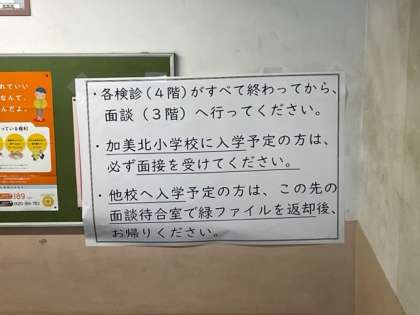 ・各検診(4階)がすべて終わってから、
面談(3階)へ行ってください。
・加美北小学校に入学予定の方は、
必ず面接を受けてください。
・他校へ入学予定の方は、この先の
面談待合室で緑ファイルを返却後、
お帰りください。
れていい
なんて、
んだよ。
っている権利
189